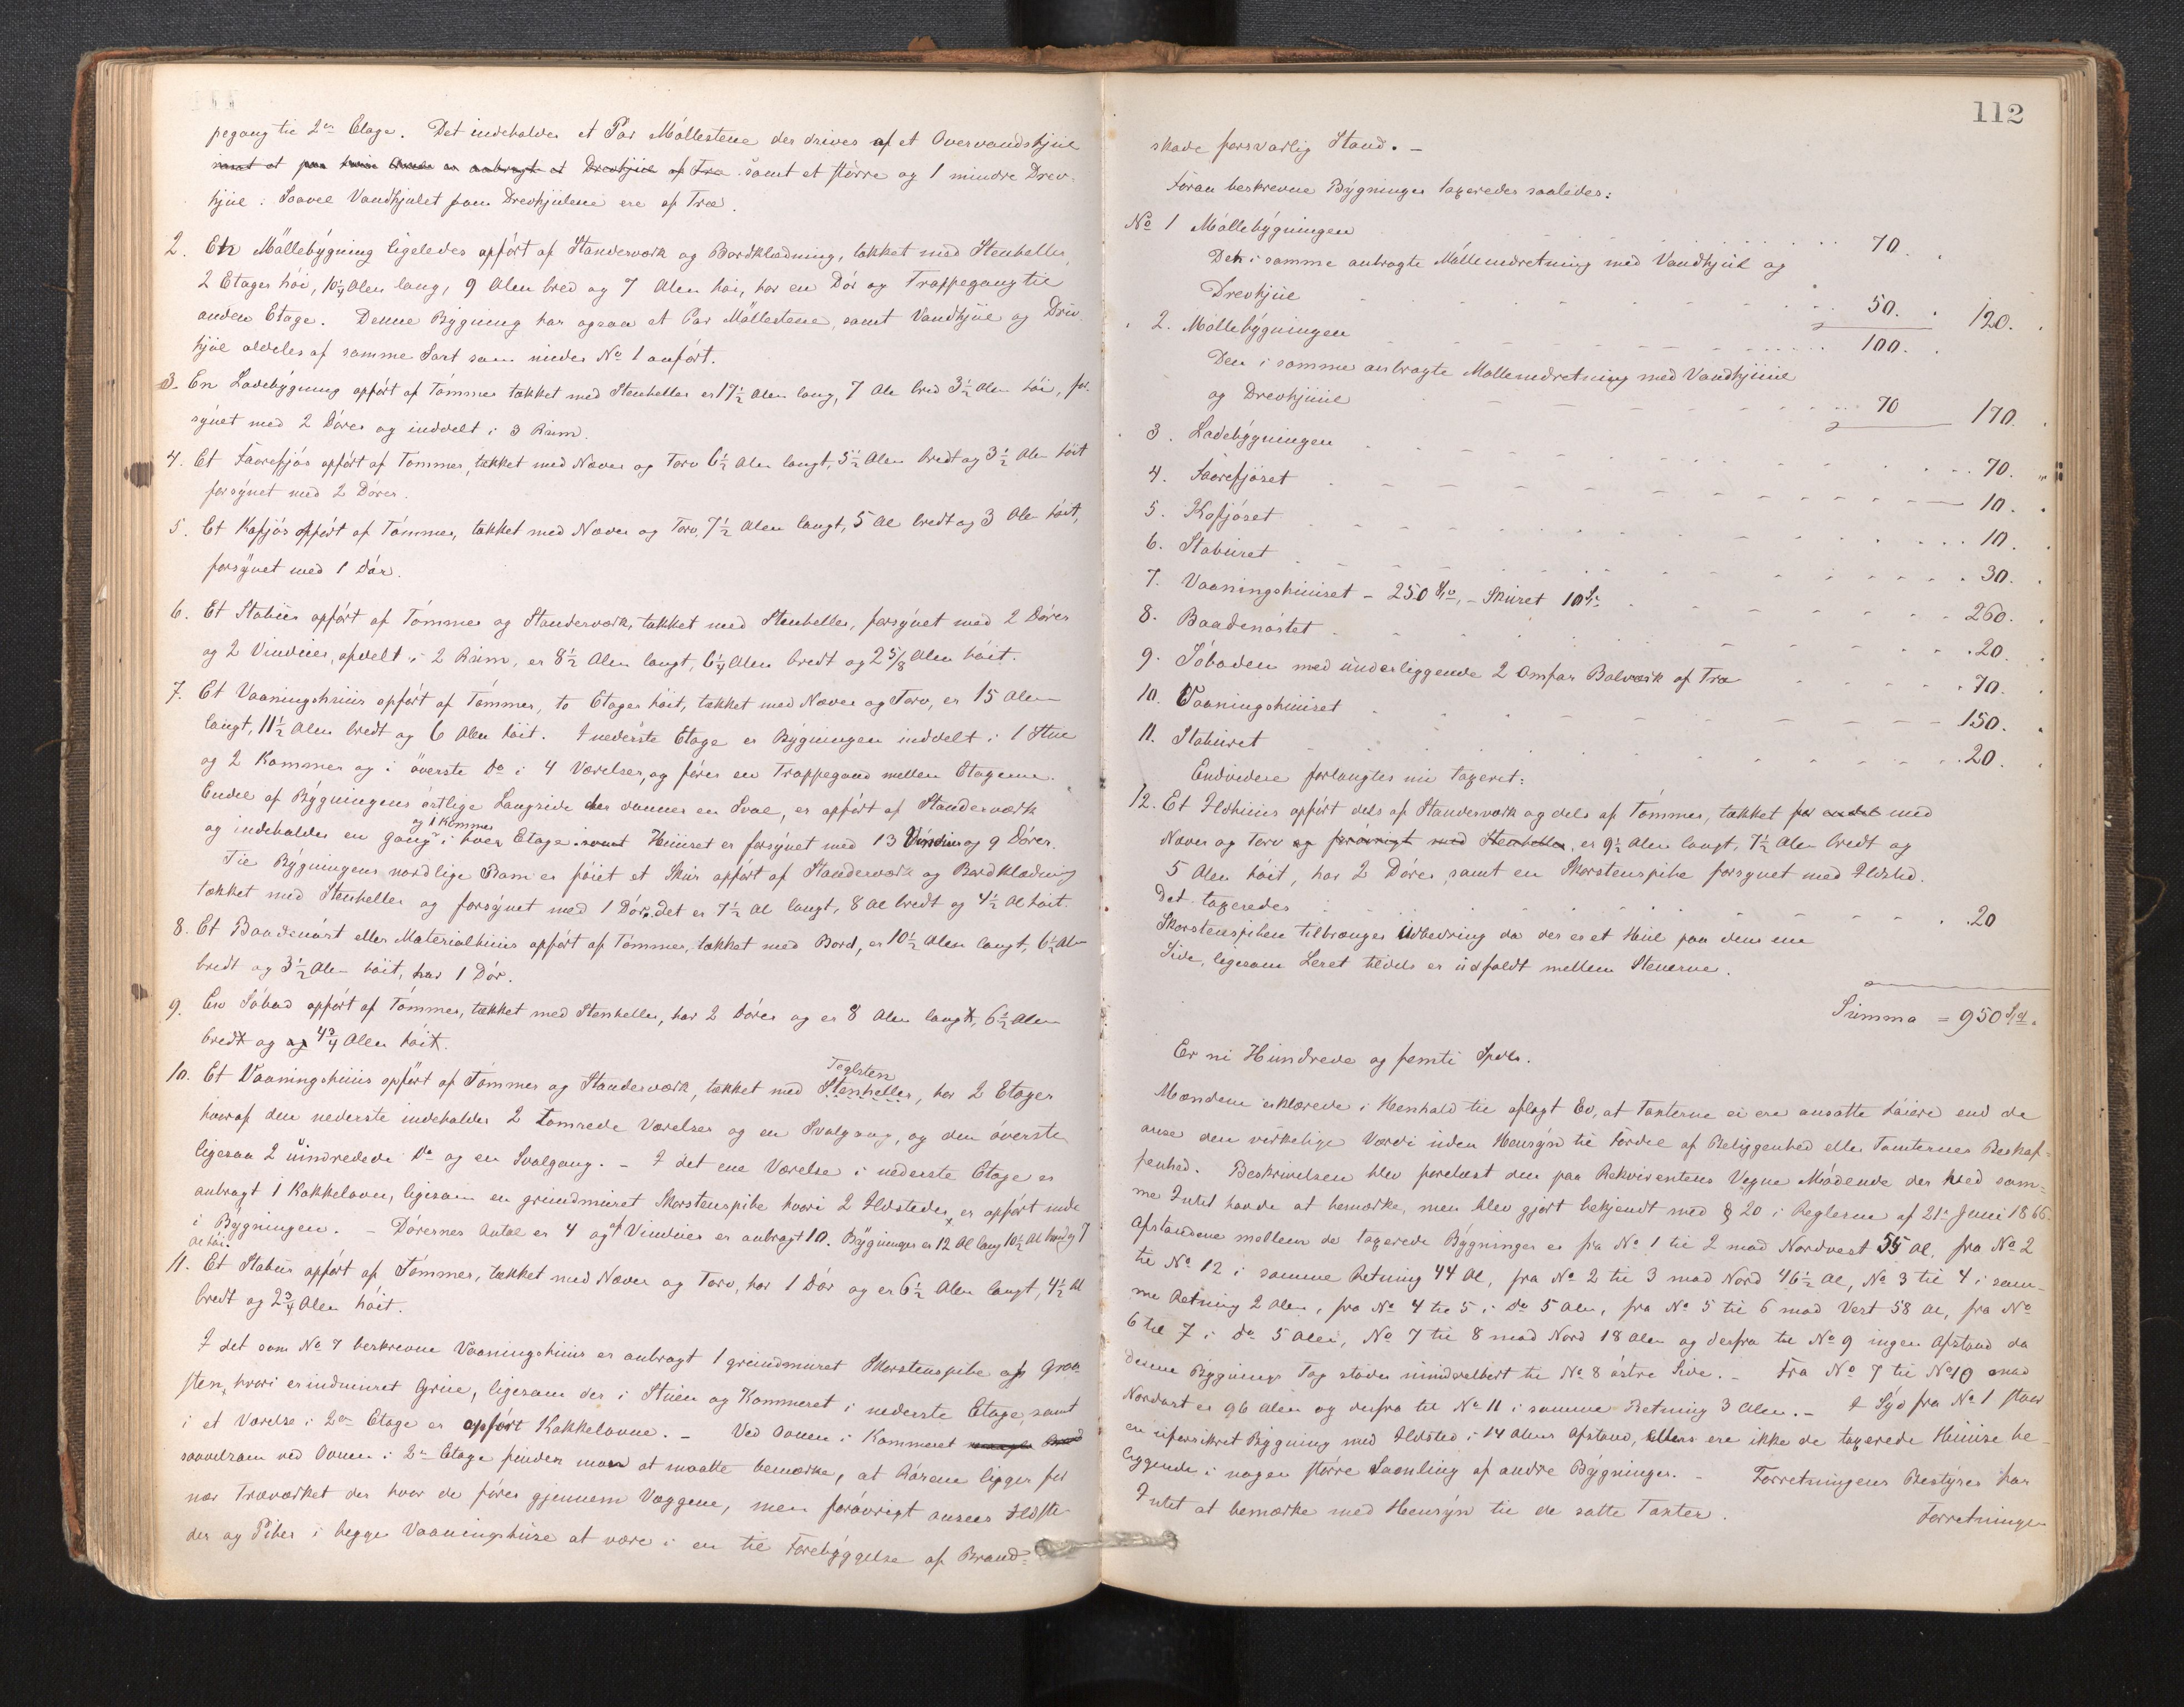 pegang til 2den Etage. Det indeholder et Par Møllestene der drives af et Overvandshjul
samt at paa hver Ende er anbragt et Drevhjul af Træ samt et større og 1 mindre Drev-
hjul. Saavel Vandhjulet som Drevhjulene ere af Træ.
2. En Møllebygning ligeledes opført af Standerværk og Bordklædning, tækket med Stenheller,
2 Etager høi, 10 1/4 Alen lang, 9 Alen bred og 7 Alen høi, har en Dør og Trappegang til
anden Etage. Denne Bygning har ogsaa et Par Møllestene, samt Vandhjul og Driv-
hjul aldeles af samme Sort som under No 1 anført.
3. En Ladebygning opført af Tømmer tækket med Stenheller er 17 1/2 Alen lang, 7 Ale bred 3 1/2 Alen høi, for-
synet med 2 Døre og inddelt i 3 Rum.
4. Et Faarefjøs opført af Tømmer, tækket med Næver og Torv 6 1/2 Alen langt, 5 1/2 Alen bredt og 3 1/2 Alen høit
forsynet med 2 Døre.
5. Et Kofjøs opført af Tømmer, tækket med Næver og Torv, 7 1/2 Alen langt, 5 Al bredt og 3 Ale høit,
forsynet med 1 Dør.
6. Et Stabur opført af Tømmer og Standerværk, tækket med Stenheller, forsynet med 2 Døre
og 2 Vinduer, afdelt i 2 Rum, er 8 1/2 Alen langt, 6 1/4 Alen bredt og 2 5/8 Alen høit.
7. Et Vaaningshuus opført af Tømmer, to Etager høit, tækket med Næver og Torv, er 15 Alen
langt, 11 1/2 Alen bredt og 6 Alen høit. I nederste Etage er Bygningen inddelt i 1 Stue
og 2 Kammer og i øverste Do i 4 Værelser, og fører en Trappegand mellem Etagerne.
Endel af Bygningens østlige Langside der danner en Sval, er opført af Standerværk
og 1 Kammer
og indeholder en gang i hver Etage samt Huuset er forsynet med 13 Vinduer og 9 Døre.
Til Bygningens nordlige Ram er føiet et Skur opført af Standerværk og Bordklædning
tækket med Stenheller og forsynet med 1 Dør, det er 7 1/2 Al langt, 8 Al bredt og 4 1/2 Al høit.
8. Et Baadenøst eller Materialhuus opført af Tømmer, tækket med Bord, er 10 1/2 Alen langt, 6 1/2 Alen
bredt og 3 1/2 Alen høit, har 1 Dør.
9. En Søbod opført af Tømmer, tækket med Stenheller, har 2 Døre og er 8 Alen langt, 6 1/2 Alen
bredt og og 4 3/4 Alen høit.
Teglsten
10. Et Vaaningshuus opført af Tømmer og Standerværk, tækket med Stenheller, har 2 Etager
hvoraf den nederste indeholder 2 tømrede Værelser og en Svalgang, og den øverste
ligesaa 2 uindredede Do og en Svalgang. – I det ene Værelse i nederste Etage er
anbragt 1 Kakkelovn, ligesom en grundmuret Skorstenspibe hvori 2 Ildsteder, er opført inde
i Bygningen. – Dørernes Antal er 4 og af Vinduer er anbragt 10. Bygningen er 12 Al lang 10 1/2 Al bred og 7
Al høi.
11. Et Stabur opført af Tømmer, tækket med Næver og Torv, har 1 Dør og er 6 1/2 Alen langt, 4 1/2 Al
bredt og 2 3/4 Alen høit.
I det som No 7 beskrevne Vaaningshuus er anbragt 1 grundmuret Skorstenspibe af Graa-
sten, hvori er indmuret Grue, ligesom der i Stuen og Kammeret i nederste Etage, samt
i et Værelse i 2den Etage er opført Kakkelovne. – Ved Ovnen i Kammeret
saavelsom ved Ovnen i 2den Etage finder man at maatte bemærke, at Rørene ligger for
nær Træværket der hvor de føres gjennem Væggene, men forøvrigt ansees Ildste-
der og Piber i begge Vaaningshuse at være i en til Forebyggelse af Brand-
112
skade forsvarlig Stand. –
Foran beskrevne Bygninger taxeredes saaledes:
No 1 Møllebygningen 70.
Den i samme anbragte Mølleindretning med Vandhjul og
Drevhjul 50. 120.
" 2. Møllebygningen 100.
Den i samme anbragte Mølleindretning med Vandhjuul
og Drevhjuul 70 170.
" 3. Ladebygningen 70. "
4. Faarefjøset 10.
5. Kofjøset 10.
6. Staburet 30.
7. Vaaningshuuset – 250 Spd, – Skuret 10 Spd 260.
8. Baadenøstet 20.
9. Søboden med underliggende 2 Omfar Bolværk af Træ 70.
10. Vaaningshuuset 150.
11. Staburet 20.
Endvidere forlangtes nu taxeret:
12. Et Ildhuus opført dels af Standerværk og dels af Tømmer, tækket for endel med
Næver og Torv og forøvrigt med Stenheller, er 9 1/2 Alen langt, 7 1/2 Alen bredt og
5 Alen høit, har 2 Døre, samt en Skorstenspibe forsynet med Ildsted.
Det taxeredes 20
Skorstenspiben tiltrænger Udbedring da der er et Hul paa dens ene
Side, ligesom Leret tildels er udfaldt mellem Stenene.
Summa = 950 Spd.
Er ni Hundrede og femti Spdlr.
Mændene erklærede i Henhold til aflagt Ed, at Taxterne ei ere ansatte høiere end de
anse den virkelige Værdi uden Hensyn til Fordel af Beliggenhed eller Tomternes Beskaf-
fenhed. Beskrivelsen blev forelæst den paa Rekvirentens Vegne Mødende der ved sam-
me Intet havde at bemærke, men blev gjort bekjendt med § 20 i Reglerne af 21de Juni 1866.
Afstandene mellem de taxerede Bygninger er fra No 1 til 2 mod Nordvest 55 Al, fra No 2
til No 12 i samme Retning 44 Al, fra No 2 til 3 mod Nord 46 1/2 Al, No 3 til 4 i sam-
me Retning 2 Alen, fra No 4 til 5 i Do 5 Alen, fra No 5 til 6 mod Vest 58 Al, fra No
6 til 7 i do 5 Alen, No 7 til 8 mod Nord 18 Alen og derfra til No 9 ingen Afstand da
denne Bygnings Tag støder umiddelbart til No 8 østre Side. – Fra No 7 til No 10 mod
Nordost er 96 Alen og derfra til No 11 i samme Retning 3 Alen. – I Syd fra No 1 staar
en uforsikret Bygning med Ildsted i 14 Alens Afstand, ellers ere ikke de taxerede Huuse be-
liggende i nogen større Samling af andre Bygninger. – Forretningens Bestyrer har
Intet at bemærke med Hensyn til de satte Taxter. Forretningen